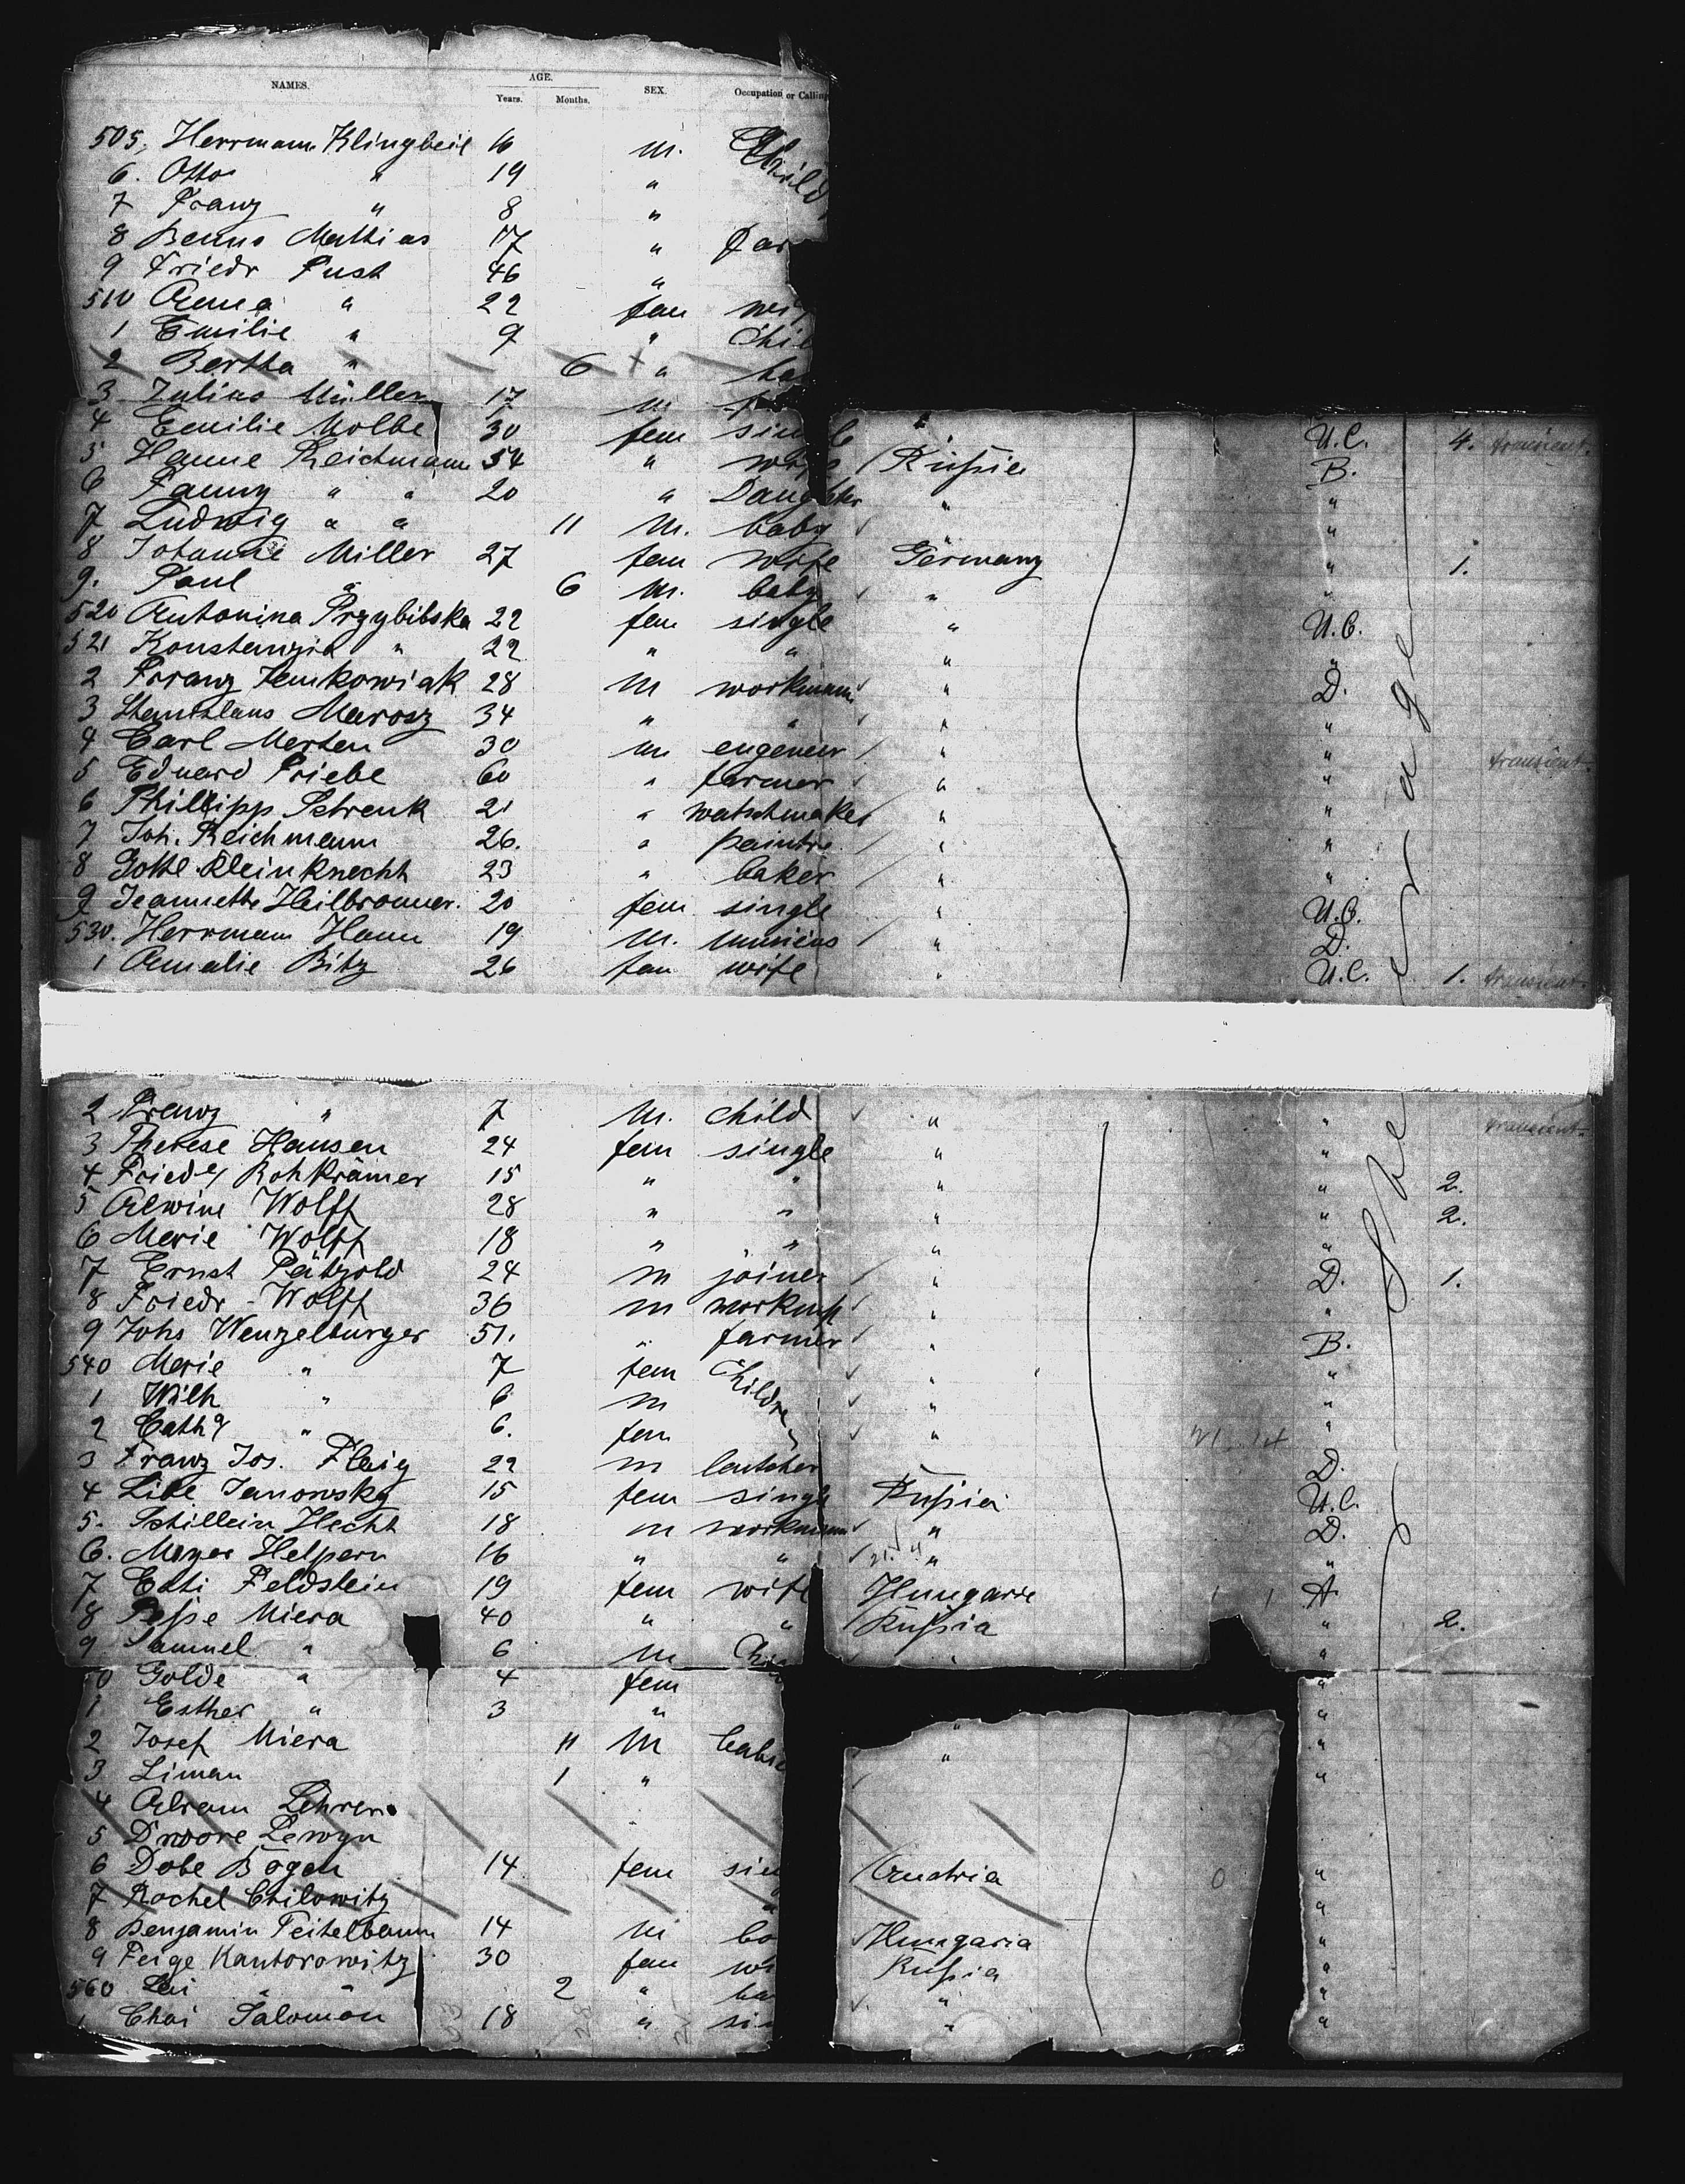 NAMES. AGE. SEX. Occupation or Calling
Years. Months.
505, Herrmann Klingbeil m. Child
6. Otto " 19 "
7 Franz " 8 "
8 Benno Mathias 17 " Far
9 Friedr Pust 46 "
510 Anna " 22 fem wi
1 Emilie " 9 " Chil
2 Bertha " 6 " ba
3 Julius Müller 17 m
4 Emilie Molbe 30 fem single U.C. 4. transient.
5 Hanne Reichmann 54 " wife Rußia B.
6 Fanny " " 20 " Daughter " "
7 Ludwig " " 11 M. baby " "
8 Johanne Miller 27 fem wife Germany " 1.
9. Paul " 6 M. baby " "
520 Antonina Przybilska 22 fem single " U.C.
521 Konstanzia " 22 " " " "
2 Franz Jemkowiak 28 M workmann " D.
3 Stanislaus Marosz 34 " " " "
4 Carl Merten 30 m engeneer " " transient.
5 Eduard Priebe 60 " farmer " "
6 Phillipp Schrenk 21 " watschmaker " "
7 Joh. Reichmann 26. " " "
8 Gottl. Kleinknecht 23 " baker " "
9 Jeannette Heilbronner. 20 fem single " U.C.
530. Herrmann Hann 19 M. " D.
1 Amalie Bitz 26 fem wife " U.C. 1. transient.
2 Franz " 7 M. child " " transient.
3 Therese Hansen 24 fem single " "
4 Rohkrämer 15 " " " " 2.
5 Alwine Wolff 28 " " " " 2.
6 Marie Wolff 18 " " " "
7 Ernst Pätzold 24 m joiner " D. 1.
8 Friedr - Wolff 36 m " "
9 Johs Wenzelburger 51. " farmer " B.
540 Marie " 7 fem Children " "
1 Wilh " 6 m " "
2 Cath " 6. fem " "
3 Franz Jos. Flaig 22 m butcher " D.
4 Janowsky 15 fem single Rußia U.C.
5. Hecht 18 m workmann " D.
6. Meyer Helpern 16 " " " "
7 Feldstein 19 fem wife Hungarie A.
8 Miera 40 " " Rußia " 2.
9 Samuel " 6 M Chi " "
0 Golde " 4 fem "
1 Esther " 3 " " "
2 Josef Miera 11 M babie " "
3 Liman 1 " "
4 Abram
5 Dwore Lewyn
6 Dobe Bogen 14 fem sin Austria "
7 Rachel "
8 Benjamin Teitelbaum 14 M bo Hungaria "
9 Feige Kantorowitz 30 fem wi Rußia "
560 " 2 " ba " "
1 Chai Salomon 18 " si " "
Steerage